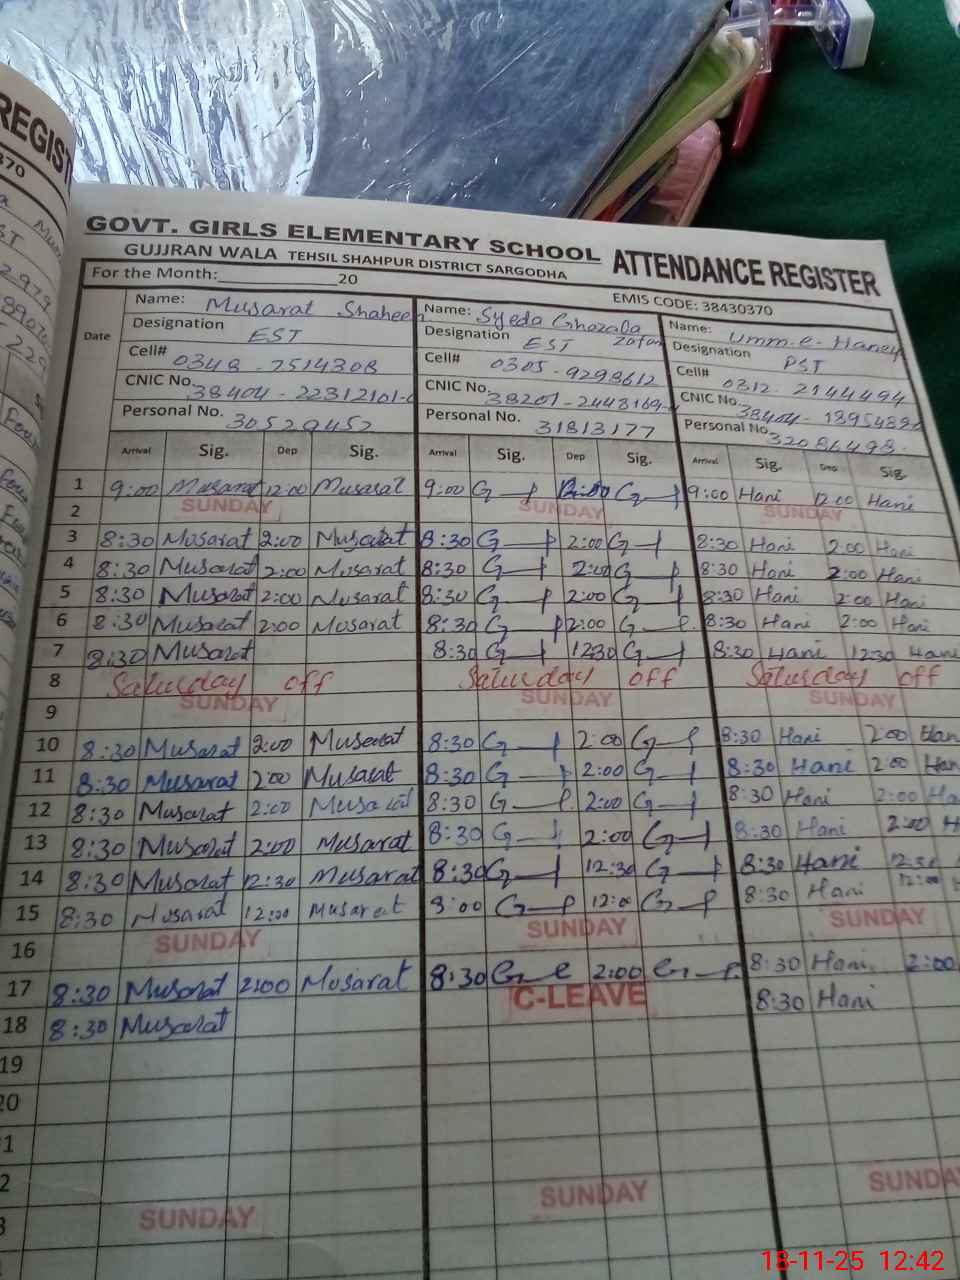 REGIST
370
GOVT. GIRLS ELEMENTARY SCHOOL ATTENDANCE REGISTER
GUJJRAN WALA TEHSIL SHAHPUR DISTRICT SARGODHA
For the Month:____________20 EMIS CODE: 38430370
Name: Musarat Shaheen Name: Syeda Ghazala Zafar Name: Umm-e-Haney
Date Designation EST Designation EST Designation PST
Cell# 0348-7514308 Cell# 0305-9298612 Cell# 0312-2144494
CNIC No. 38404-22312101- CNIC No. 38201-2443169- CNIC No. 38404-
Personal No. 30529452 Personal No. 31813177 Personal No. 32086493.
Arrival Sig. Dep Sig. Arrival Sig. Dep Sig. Arrival Sig. Dep Sig
1 9:00 Musarat 12:00 Musarat 9:00 G 12:00 G 9:00 Hani 12:00 Hani
2 SUNDAY SUNDAY SUNDAY
3 8:30 Musarat 2:00 Musarat 8:30 G 2:00 G 8:30 Hani 2:00 Hani
4 8:30 Musarat 2:00 Musarat 8:30 G 2:00 G 8:30 Hani 2:00 Hani
5 8:30 Musarat 2:00 Musarat 8:30 G 2:00 G 8:30 Hani 2:00 Hani
6 8:30 Musarat 2:00 Musarat 8:30 G 2:00 G 8:30 Hani 2:00 Hani
7 8:30 Musarat 8:30 G 12:30 G 8:30 Hani 12:30 Hani
8 Saturday off Saturday off Saturday off
9 SUNDAY SUNDAY SUNDAY
10 8:30 Musarat 2:00 Musarat 8:30 G 2:00 G 8:30 Hani 2:00 Han
11 8:30 Musarat 2:00 Musarat 8:30 G 2:00 G 8:30 Hani 2:00 Han
12 8:30 Musarat 2:00 Musarat 8:30 G 2:00 G 8:30 Hani 2:00 Ha
13 8:30 Musarat 2:00 Musarat 8:30 G 2:00 G 8:30 Hani 2:00 H
14 8:30 Musarat 12:30 Musarat 8:30 G 12:30 G 8:30 Hani 12:30
15 8:30 Musarat 12:00 Musarat 9:00 G 12:00 G 8:30 Hani 12:00 H
16 SUNDAY SUNDAY SUNDAY
17 8:30 Musarat 2:00 Musarat 8:30 G 2:00 G 8:30 Hani 2:00
18 8:30 Musarat C-LEAVE 8:30 Hani
19
20
1
2
3 SUNDAY SUNDAY SUNDA
18-11-25 12:42